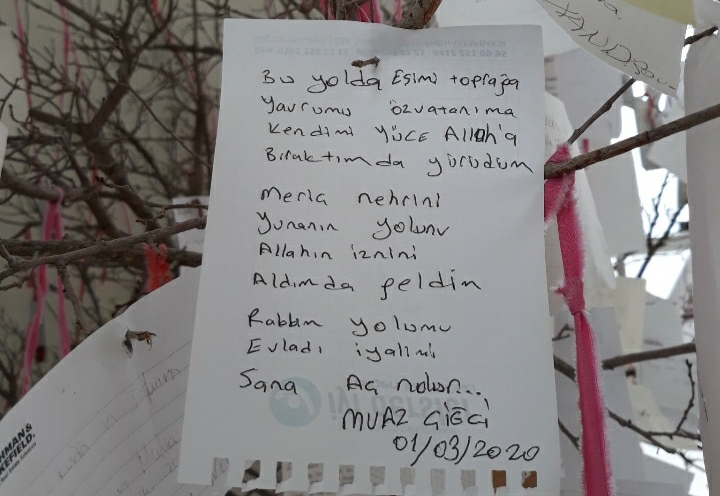 Bu yolda Eşimi toprağa
Yavrumu özvatanıma
Kendimi YÜCE Allah'a
Bıraktımda yürüdüm
Meriç nehrini
Yunanın yolunu
Allahın iznini
Aldımda geldim
Rabbim yolumu
Evladı iyalimi
Sana Aç nolur...
MUAZ ÇİĞCİ
01/03/2020
HMAN &
KEFIELD